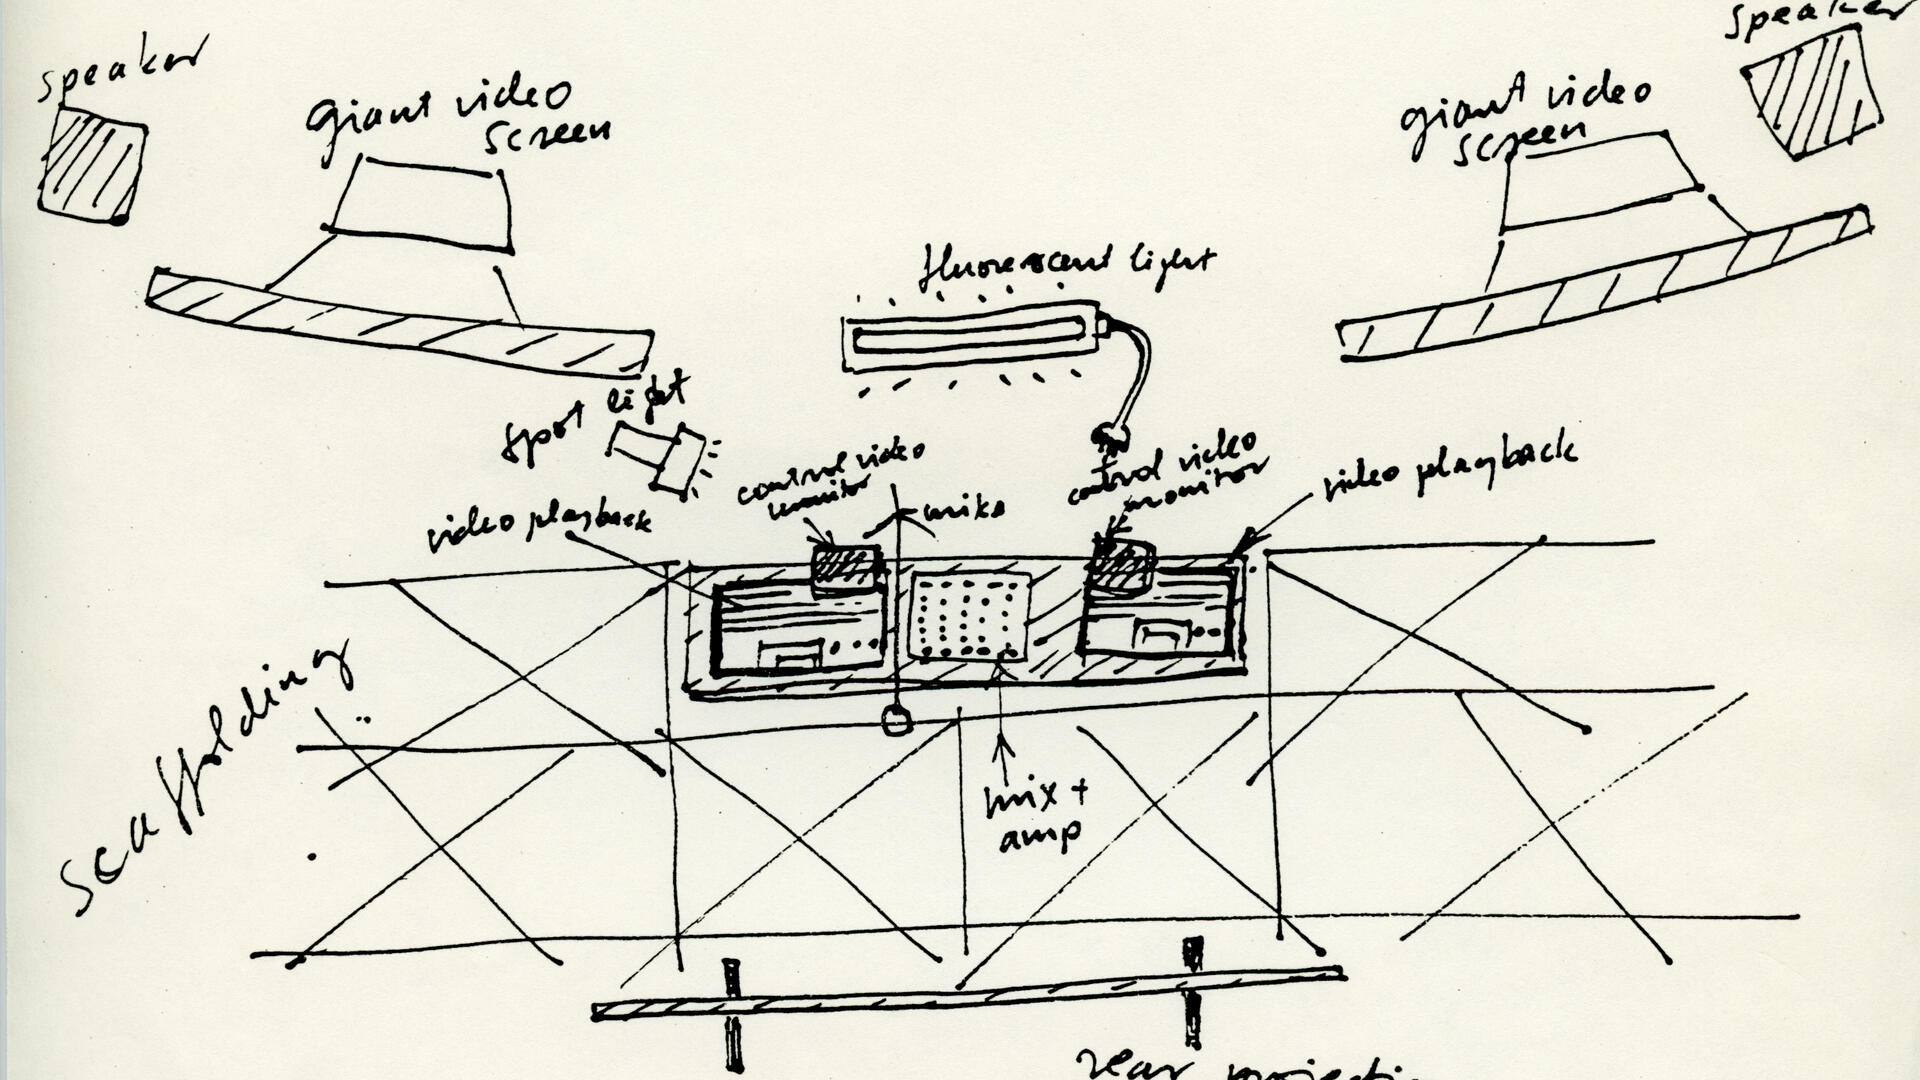 speaker
speaker
giant video
screen
giant video
screen
fluorescent light
spot light
control video
monitor
control video
monitor
video playback
video playback
mike
scaffolding
mix +
amp
rear projecti